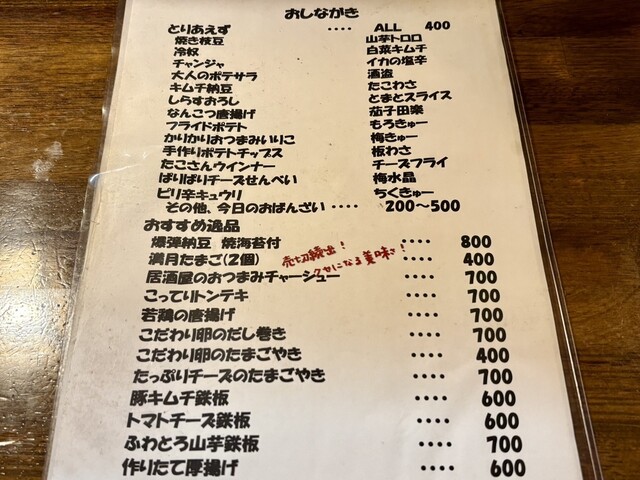 おしながき
とりあえず ‥‥ ALL 400
焼き枝豆 山芋トロロ
冷奴 白菜キムチ
チャンジャ イカの塩辛
大人のポテサラ 酒盗
キムチ納豆 たこわさ
しらすおろし とまとスライス
なんこつ唐揚げ 茄子田楽
フライドポテト もろきゅー
かりかりおつまみいりこ 梅きゅー
手作りポテトチップス 板わさ
たこさんウインナー チーズフライ
ぱりぱりチーズせんべい 梅水晶
ピリ辛キュウリ ちくきゅー
その他、今日のおばんざい ‥‥ 200〜500
おすすめ逸品
爆弾納豆 焼海苔付 ‥‥ 800
売切続出!
満月たまご(2個) ‥‥ 400
クセになる美味さ!
居酒屋のおつまみチャーシュー ‥‥ 700
こってりトンテキ ‥‥ 700
若鶏の唐揚げ ‥‥ 700
こだわり卵のだし巻き ‥‥ 700
こだわり卵のたまごやき ‥‥ 400
たっぷりチーズのたまごやき ‥‥ 700
豚キムチ鉄板 ‥‥ 600
トマトチーズ鉄板 ‥‥ 600
ふわとろ山芋鉄板 ‥‥ 700
作りたて厚揚げ ‥‥ 600